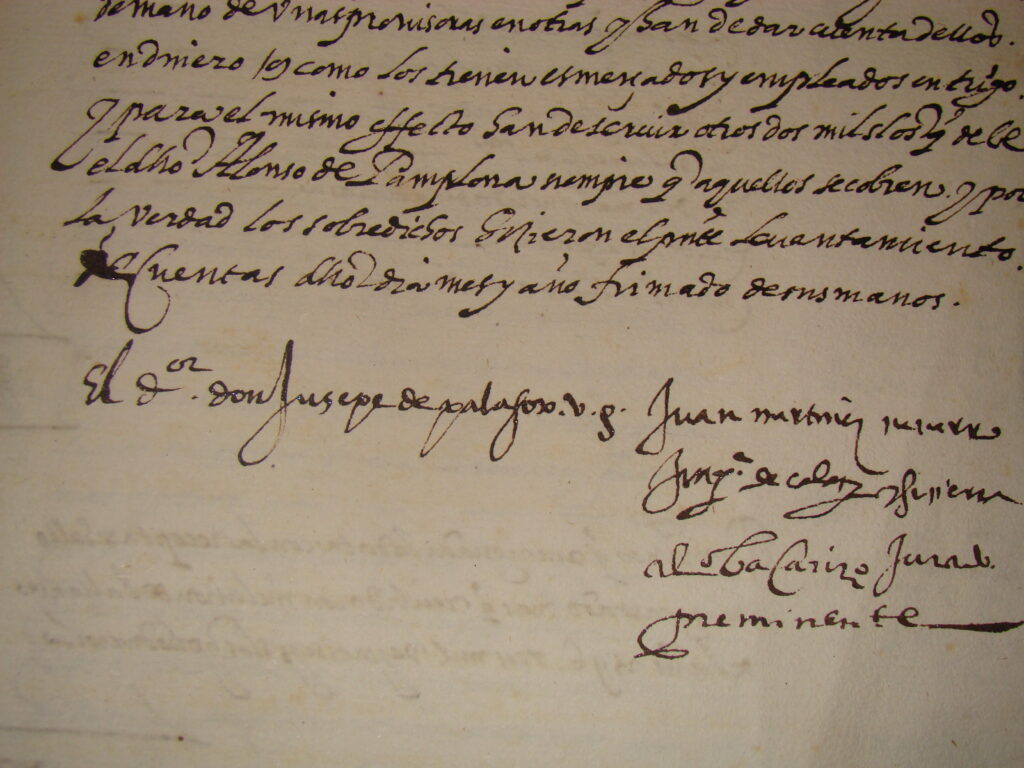 de mano de unas provisoras en otras y han de dar cuenta dellos.
en dinero como los tienen esmerçados y empleados en trigo.
y para el mismo effecto han de servir otros dos mil slos q de be
el dho Alonso de Pamplona siempre q aquellos se cobren. y por
la verdad los sobredichos hizieron el pnte levantamiento.
de Cuentas dho dia mes y año frimado de sus manos.
El d.or don Jusepe de palafox. v. g.
Juan martinez
de
Jurado
preminente